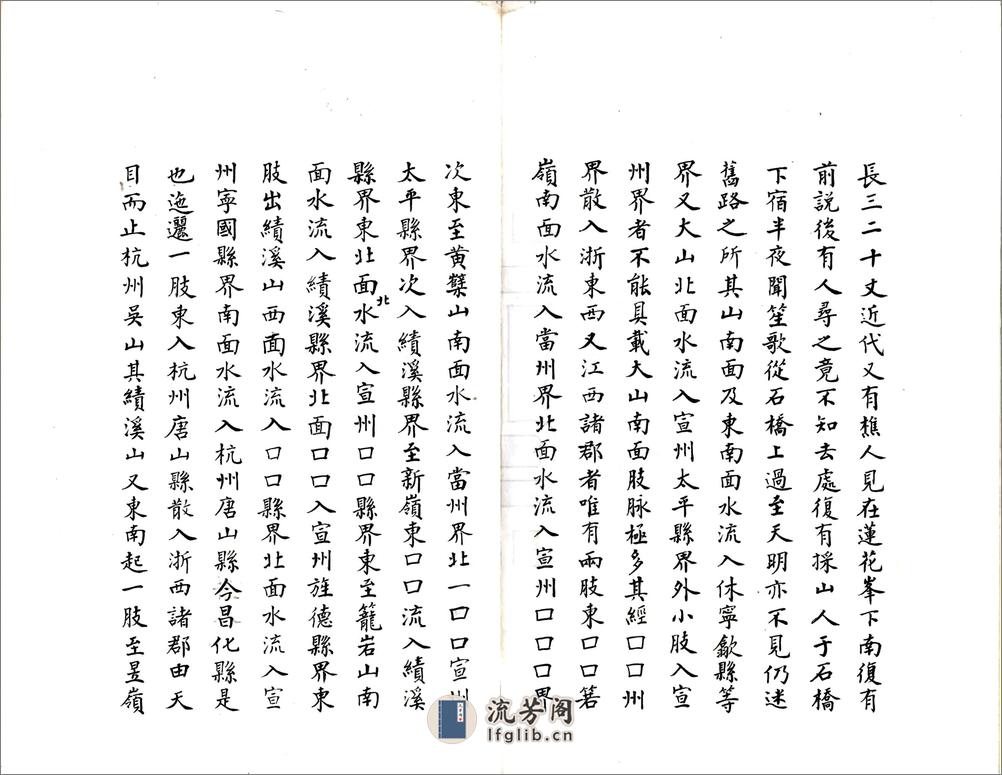 長三二十丈近代又有樵人見在蓮花峯下南復有
前説後有人尋之竟不知去處復有採山人于石橋
下宿半夜聞笙歌從石橋上過至天明亦不見仍迷
舊路之所其山南面及東南面水流入休寧歙縣等
界又大山北面水流入宣州太平縣界外小肢入宣
州界者不能具載大山南面肢脉極多其經口口州
界散入浙東西又江西諸郡者唯有兩肢東口口箬
嶺南面水流入當州界北面水流入宣州口口口界
次東至黄蘗山南面水流入當州界北一口口宣州
太平縣界次入績溪縣界至新嶺東口口流入績溪
縣界東北面北水流入宣州口口縣界東至籠岩山南
面水流入績溪縣界北面口口入宣州旌德縣界東
肢出績溪山西面水流入口口縣界北面水流入宣
州寧國縣界南面水流入杭州唐山縣今昌化縣是
也迤邐一肢東入杭州唐山縣散入浙西諸郡由天
目而止杭州吳山其績溪山又東南起一肢至昱嶺
流芳阁
lfglib.cn